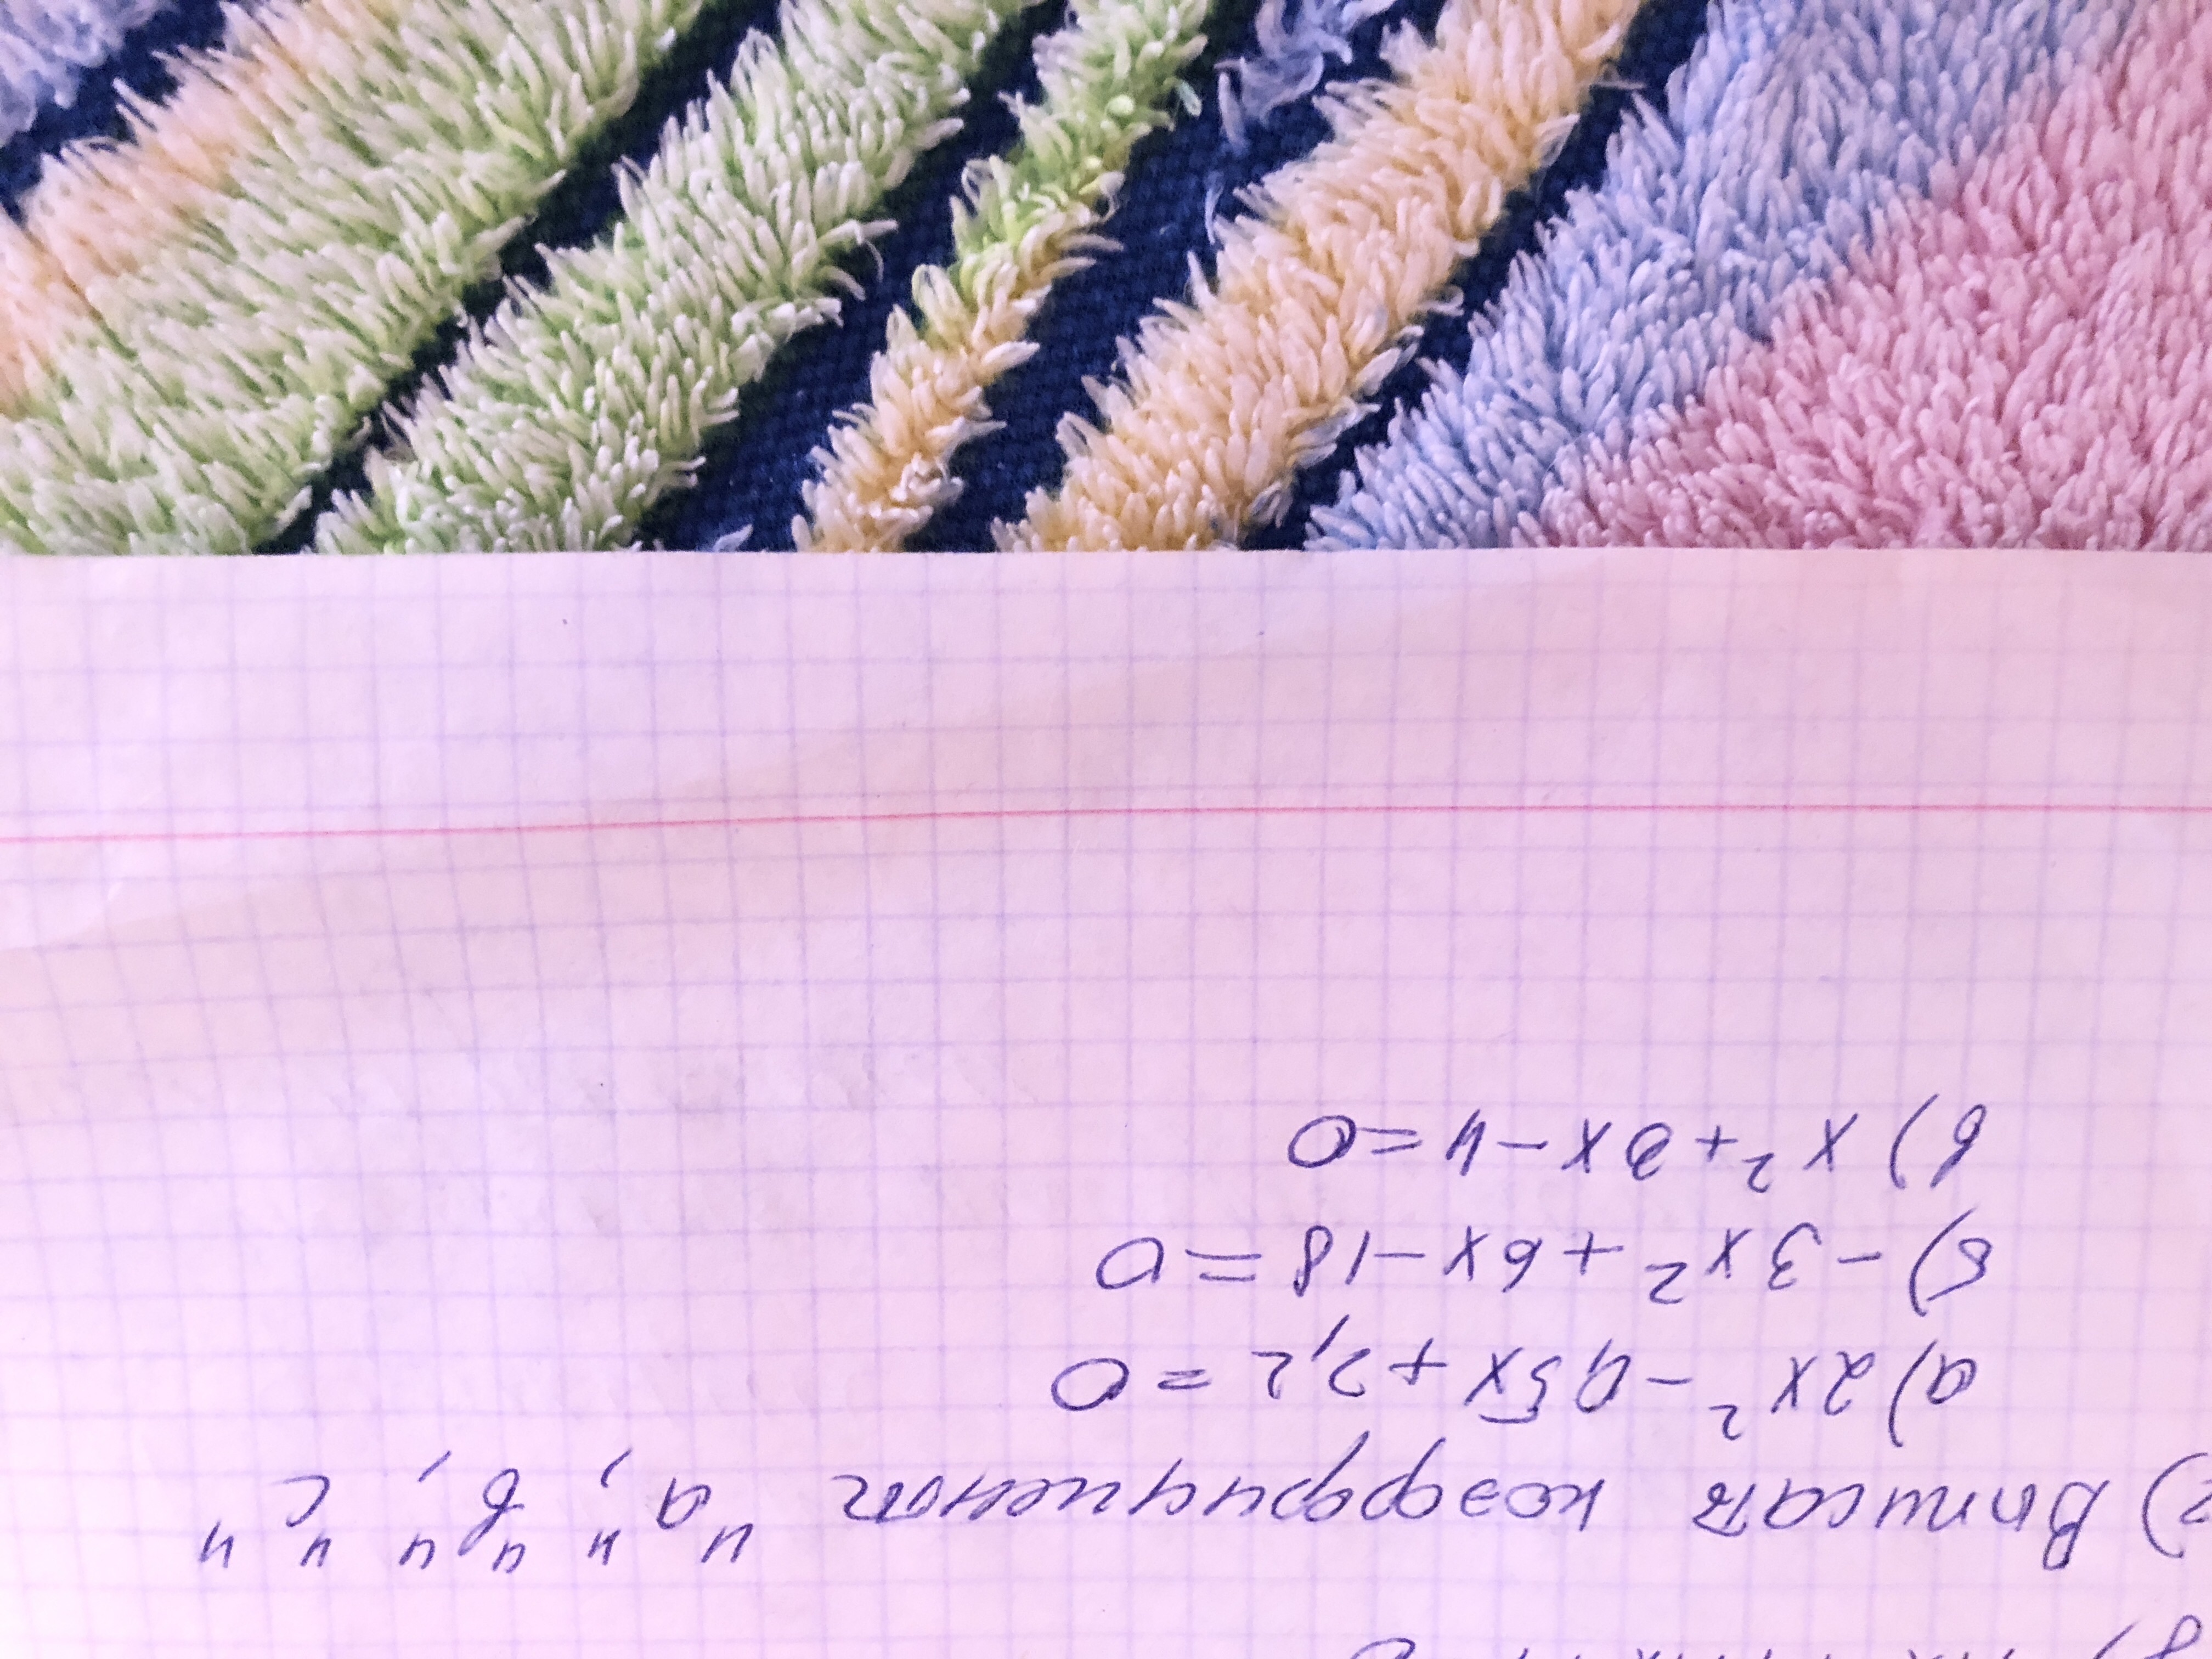 2) Выписать коэффициент "а", "b", "c"
а) 2x² - 0,5x + 2,2 = 0
б) - 3x² + 6x - 18 = 0
в) x² + 8x - 4 = 0